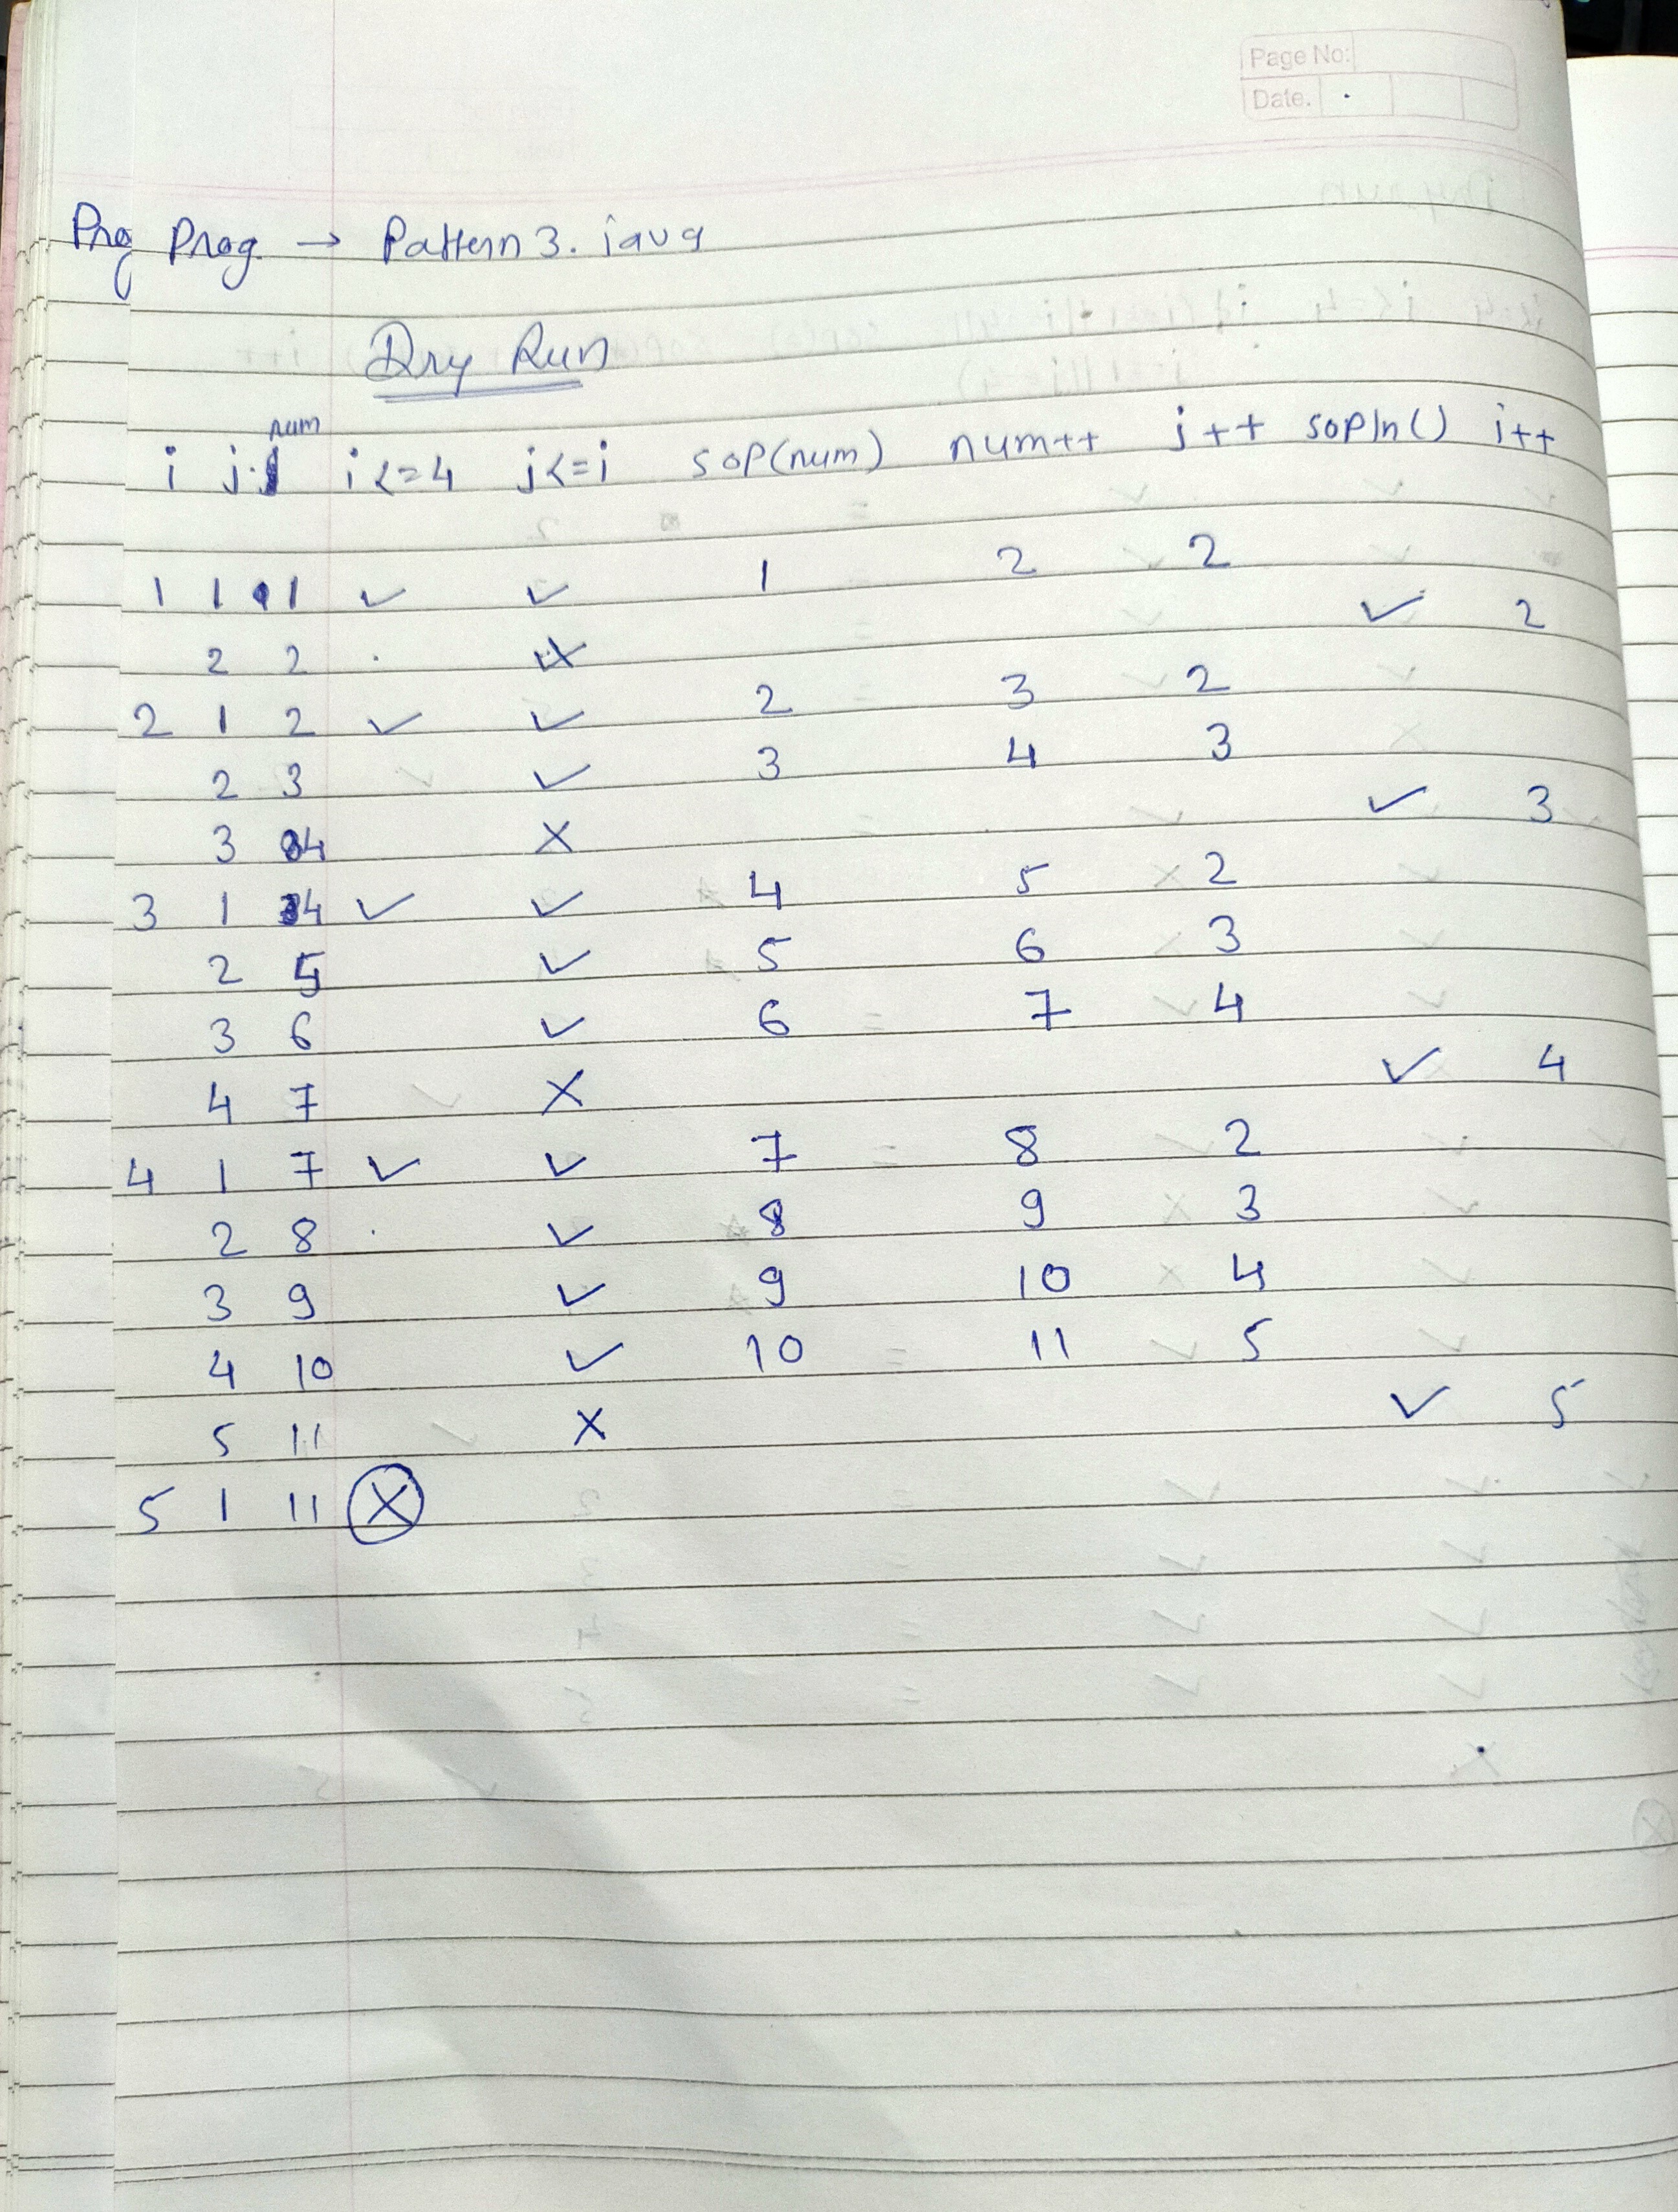 Page No:
Date.
Prog Prog. → Pattern 3. java
Dry Run
num
i j i<=4 j<=i sop(num) num++ j++ sopln() i++
1 1 1 ✓ ✓ 1 2 2
2 2 X ✓ 2
2 1 2 ✓ ✓ 2 3 2
2 3 ✓ 3 4 3
3 4 X ✓ 3
3 1 4 ✓ ✓ 4 5 2
2 5 ✓ 5 6 3
3 6 ✓ 6 7 4
4 7 X ✓ 4
4 1 7 ✓ ✓ 7 8 2
2 8 ✓ 8 9 3
3 9 ✓ 9 10 4
4 10 ✓ 10 11 5
5 11 X ✓ 5
5 1 11 X